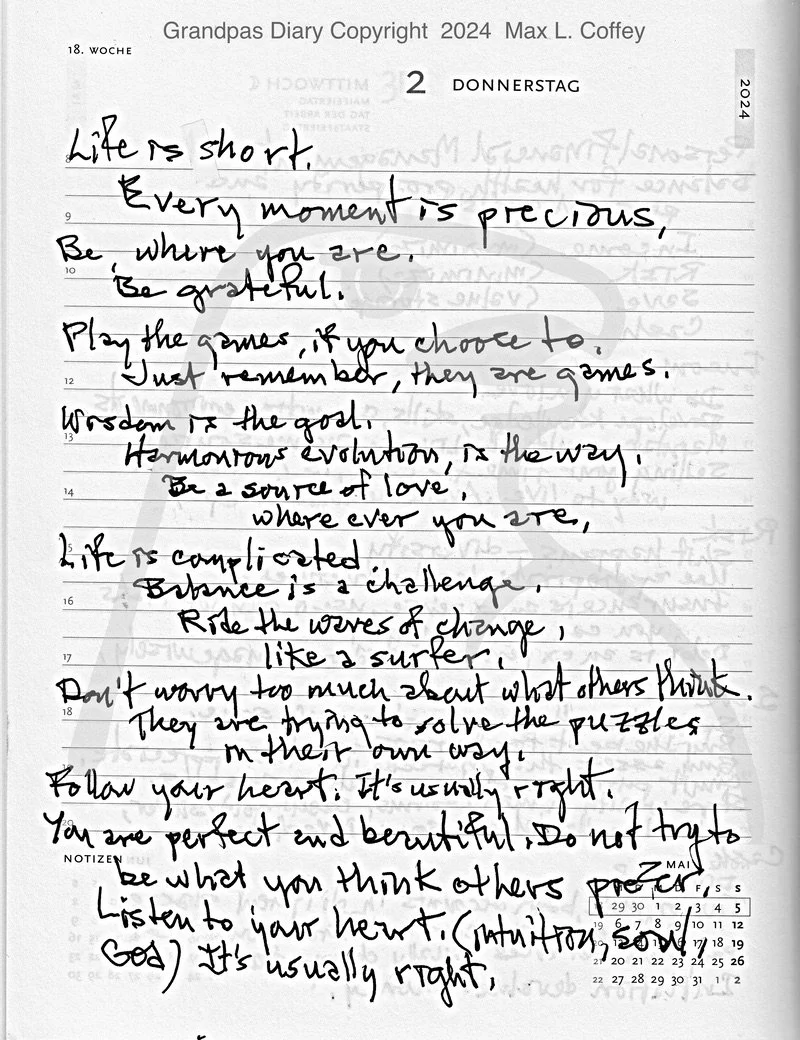 Grandpas Diary Copyright 2024 Max L. Coffey
18. WOCHE
2 DONNERSTAG
2024
8 Life is short.
Every moment is precious,
9
Be, where you are.
10
Be grateful.
Play the games, if you choose to.
12 Just remember, they are games.
Wisdom is the goal.
13
Harmonious evolution, is the way.
14 Be a source of love,
where ever you are,
15
Life is complicated.
Balance is a challenge.
16
Ride the waves of change,
17 like a surfer.
Don't worry too much about what others think.
18 They are trying to solve the puzzles
in their own way.
19
Follow your heart. It's usually right.
20
You are perfect and beautiful. Do not try to
NOTIZEN
MAI
be what you think others prefer,
D F S S
29 30 1 2 3 4 5
Listen to your heart. (intuition, soul,
19 6 7 8 9 10 11 12
God) It's usually right.
17 18 19
21 20 21 22 23 24 25 26
22 27 28 29 30 31 1 2